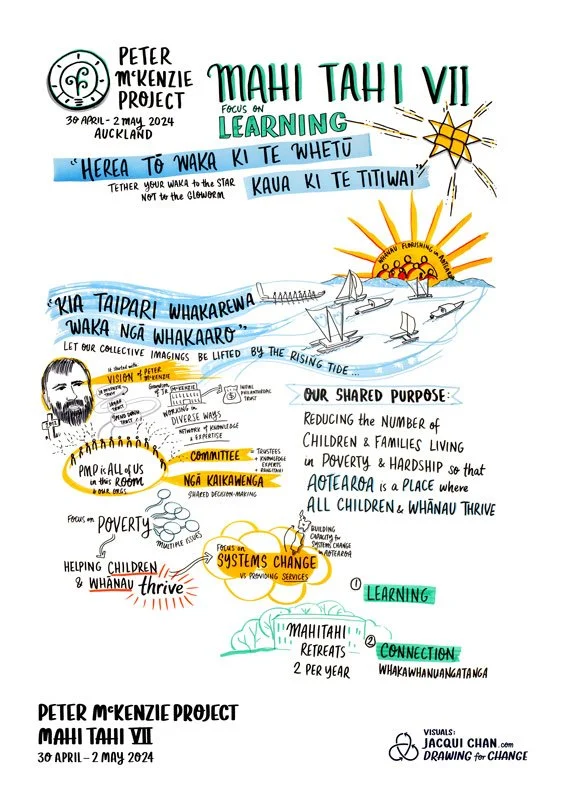 PETER
McKENZIE
PROJECT
30 APRIL - 2 MAY 2024
AUCKLAND
MAHI TAHI VII
FOCUS ON
LEARNING
"HEREA TŌ WAKA KI TE WHETŪ
TETHER YOUR WAKA to the STAR
NOT to the GLOWORM
KAUA KI TE TITIWAI"
WHĀNAU FLORISHING in AOTEAROA
"KIA TAIPARI WHAKAREWA
WAKA NGĀ WHAKAARO"
LET OUR COLLECTIVE IMAGINGS BE LIFTED BY THE RISING TIDE ...
It started with
VISION of PETER
McKENZIE
McKENZIE
SPEND DOWN
TRUST
INITIAL
PHILANTHROPIC
TRUST
WORKING in
DIVERSE WAYS
NETWORK of KNOWLEDGE
& EXPERTISE
PMP is ALL of US
in this ROOM
& OUR ORGS
COMMITTEE
= TRUSTEES
+ KNOWLEDGE
EXPERTS
+ RANGATAHI
NGĀ KAIKAWENGA
SHARED DECISION-MAKING
OUR SHARED PURPOSE:
REDUCING the NUMBER of
CHILDREN & FAMILIES LIVING
in POVERTY & HARDSHIP so that
AOTEAROA is a PLACE where
ALL CHILDREN & WHĀNAU THRIVE
FOCUS on POVERTY
MULTIPLE ISSUES
HELPING CHILDREN
& WHĀNAU thrive
FOCUS on
SYSTEMS CHANGE
VS PROVIDING SERVICES
BUILDING
CAPACITY for
SYSTEMS CHANGE
in AOTEAROA
① LEARNING
MAHITAHI
RETREATS
2 PER YEAR
② CONNECTION
WHAKAWHANUANGATANGA
PETER McKENZIE PROJECT
MAHI TAHI VII
30 APRIL - 2 MAY 2024
VISUALS:
JACQUI CHAN.com
DRAWING for CHANGE